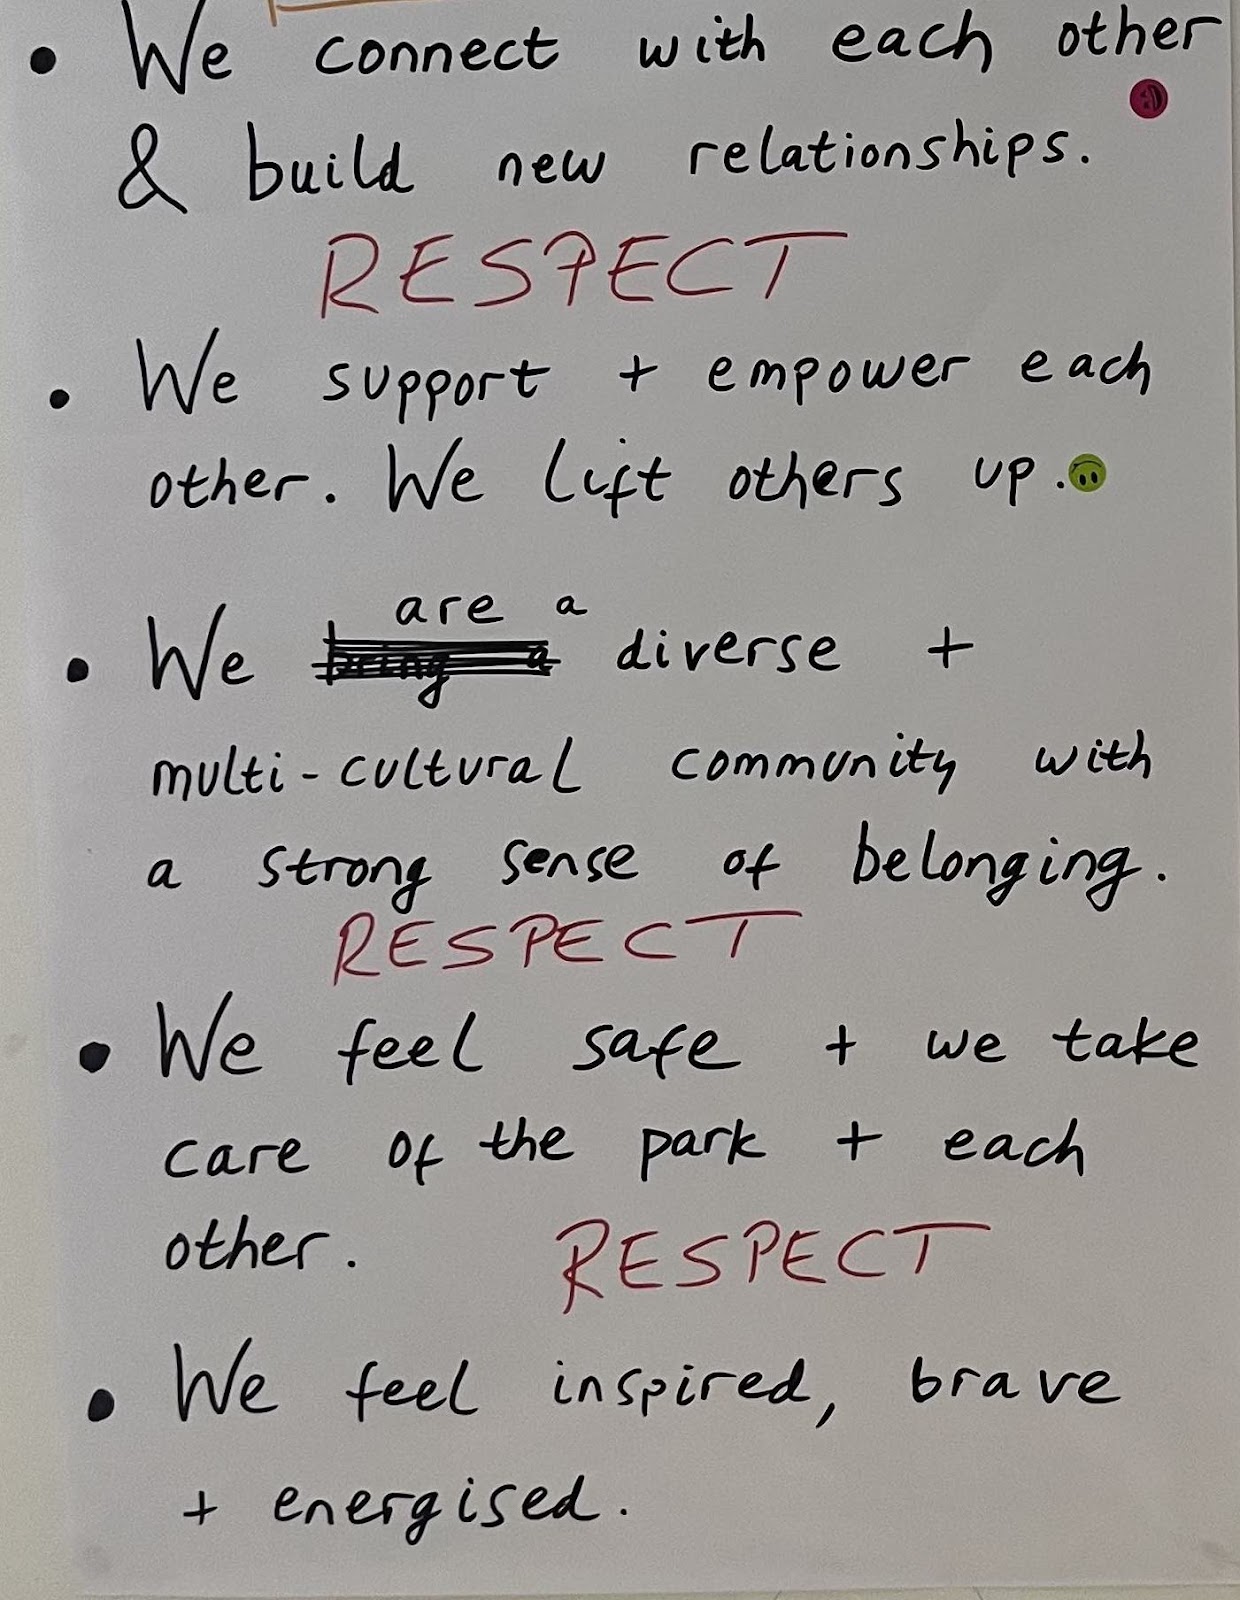 • We connect with each other
& build new relationships.
RESPECT
• We support + empower each
other. We lift others up.
are a
• We bring a diverse +
multi-cultural community with
a strong sense of belonging.
RESPECT
• We feel safe + we take
care of the park + each
other. RESPECT
• We feel inspired, brave
+ energised.